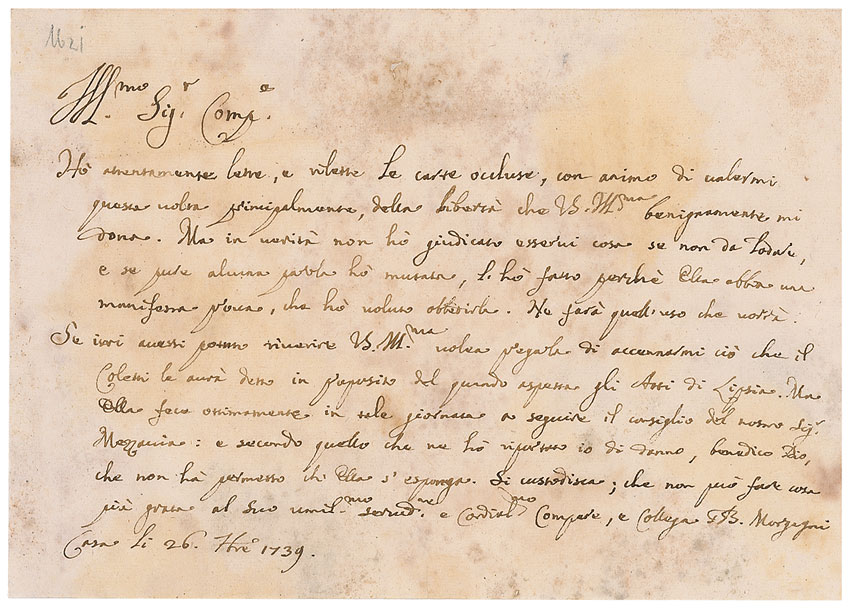 1621
Ill.mo Sig.r Comp.e
Hò attentamente lette, e rilette le carte occluse, con animo di valermi
questa volta principalmente, della libertà che VS. Ill.ma benignamente mi
dona. Ma in verità non hò giudicato esservi cosa se non da lodare,
e se pure alcuna parola hò mutata, l'hò fatto perchè Ella abbia una
manifesta prova, che hò voluto obbedirla. Ne farà quell'uso che vorrà.
Se ieri avessi potuto riverire VS. Ill.ma volea pregarla di accennarmi ciò che il
Coletti le avrà detto in proposito del quando aspetta gli Atti di Lipsia. Ma
Ella fece ottimamente in tale giornata a seguire il consiglio del nostro Sig.r
Mezzavia: e secondo quello che ne hò riportato io di danno, benedico Dio,
che non hà permesso ch'Ella s'esponga. Si custodisca; che non può fare cosa
più grata al suo umil.mo servid.re e Cordial.mo Compare, e Collega GB. Morgagni
Casa li 26. 1739.